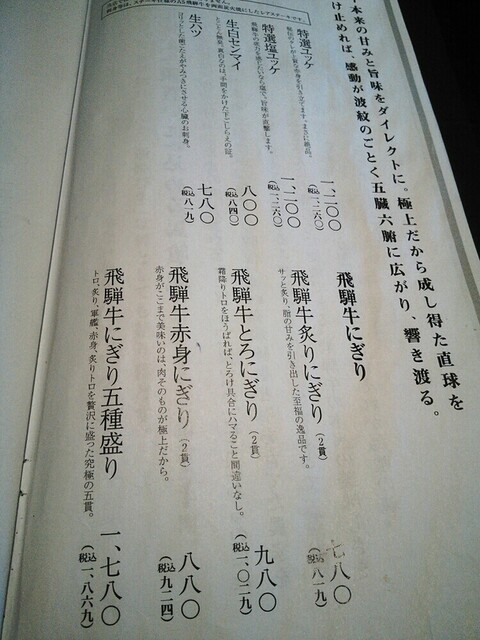 本来の甘みと旨味をダイレクトに。極上だから成し得た直球を
け止めれば、感動が波紋のごとく五臓六腑に広がり、響き渡る。
特選ユッケ
一、二〇〇
(税込一、二六〇)
特選塩ユッケ
一、二〇〇
(税込一、二六〇)
生白センマイ
八〇〇
(税込八四〇)
生ハツ
心臓のお刺身。
七八〇
(税込八一九)
飛騨牛にぎり
飛騨牛炙りにぎり(2貫)
サッと炙り、脂の甘みを引き出した至福の逸品です。
七八〇
(税込八一九)
飛騨牛とろにぎり(2貫)
霜降りトロをほうばれば、とろけ具合にハマること間違いなし。
九八〇
(税込一、〇二九)
飛騨牛赤身にぎり(2貫)
赤身がここまで美味いのは、肉そのものが極上だから。
八八〇
(税込九二四)
飛騨牛にぎり五種盛り
トロ、炙り、軍艦、赤身、炙りトロを贅沢に盛った究極の五貫。
一、七八〇
(税込一、八六九)